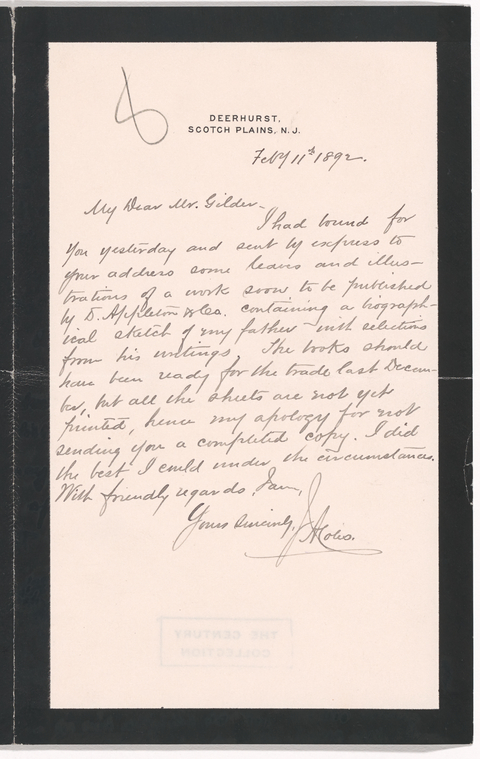 8
DEERHURST,
SCOTCH PLAINS, N.J.
Feby 11th 1892.
My Dear Mr. Gilder -
I had bound for
you yesterday and sent by express to
your address some leaves and illus-
trations of a work soon to be published
by D. Appleton & Co. containing a biograph-
ical sketch of my father with selections
from his writings, The books should
have been ready for the trade last Decem-
ber, but all the sheets are not yet
printed, hence my apology for not
sending you a completed copy. I did
the best I could under the circumstances.
With friendly regards, I am,
Yours Sincerely,
THE CENTURY
COLLECTION